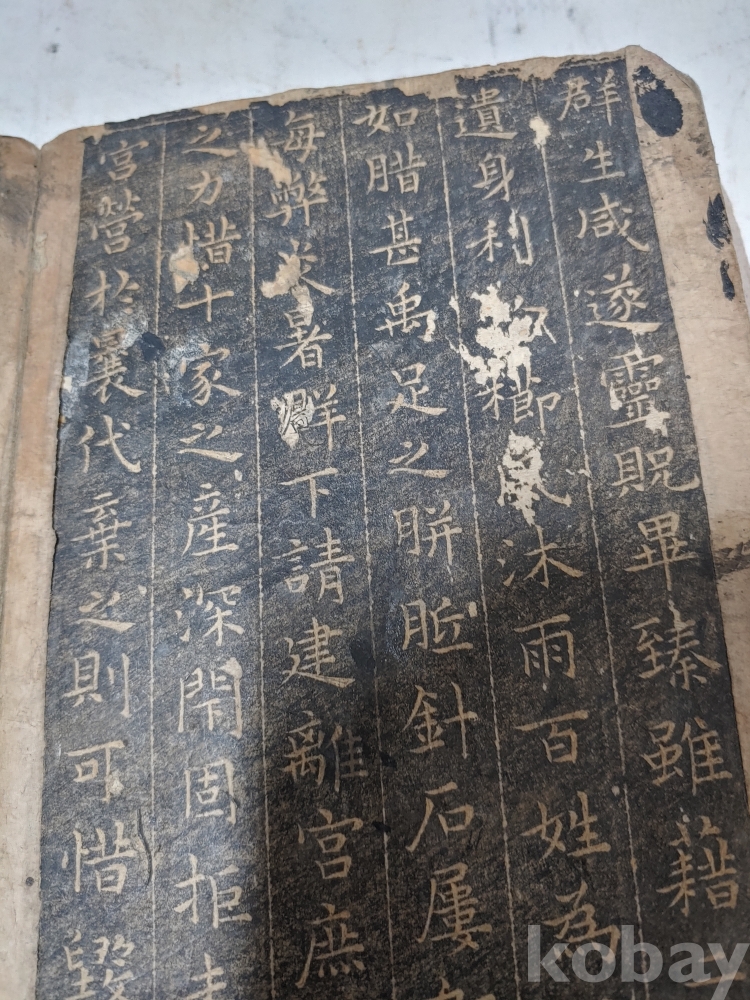 群生咸遂靈貺畢臻雖藉
遺身利櫛風沐雨百姓為
如腊甚禹足之胼胝針石屢
每弊炎暑群下請建離宮庶
之力惜十家之産深閇固拒
宮營於曩代棄之則可惜毀
kobay